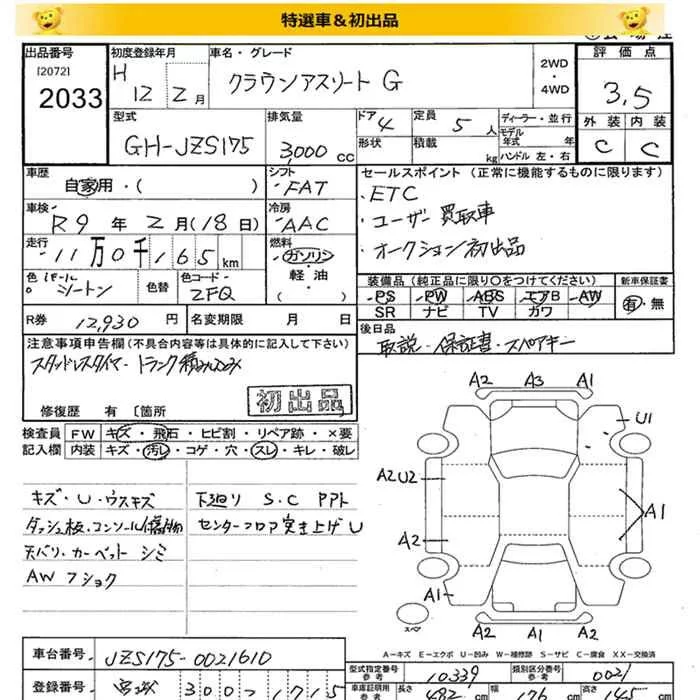 特選車＆初出品
出品番号 初度登録年月 車名・グレード 2WD・4WD 評価点
[2072] 2033 H 12 2月 クラウンアスリート G 3.5
型式 排気量 ドア 定員 ディーラー・並行 外装 内装
GH-JZS175 3,000cc 4 5人 モデル年式 年 C C
形状 積載 kg ハンドル 左・右
車歴 シフト セールスポイント (正常に機能するものに限ります)
自家用・( ) FAT ・ETC
車検 冷房 ・ユーザー買取車
R9年2月(18日) AAC ・オークション初出品
走行 燃料
11万0千165km ガソリン・軽・油・( )
装備品 (純正品に限り○をつけてください) 新車保証書
色 色替 色コード 2FQ
PS PW ABS エアB AW 有・無
SR ナビ TV カワ
R券 12,930円 名変期限 月 日
後日品
取説・保証書・スペアキー
注意事項申告欄(不具合内容等は具体的に記入して下さい)
スタッドレスタイヤ・トランク積み込み
初出品
修復歴 有 〔箇所
検査員 FW キズ・飛石・ヒビ割・リペア跡・×要
記入欄 内装 キズ・汚レ・コゲ・穴・スレ・キレ・破レ
A2 A3 A1
U1
キズ・U・ウスキズ 下廻り S.C PPト
A2U2
ダッシュ板・コンソール A1
センターフロア突き上げU
天バリ・カーペット シミ
A2
AW フショク
A1
スペア
A2 A1 A2
A-キズ E-エクボ U-凹み W-補修跡 S-サビ C-腐食 XX-交換済
車台番号 JZS175-0021610
型式指定番号 参考 10339 類別区分番号 参考 0021
登録番号 宮城 300 1715
車庫証明用 参考 長さ 482cm 幅 176cm 高さ 145cm